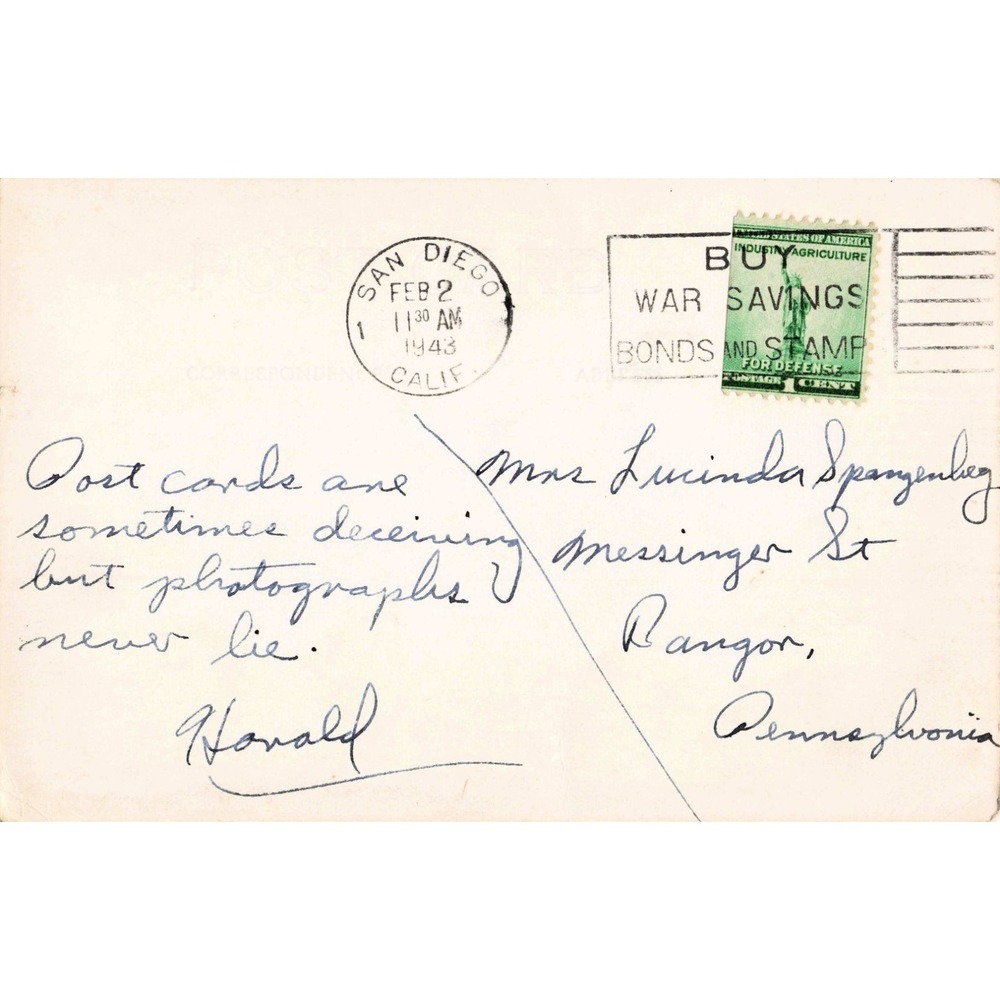 POST CARD
SAN DIEGO
FEB 2
11 30 AM
1943
1
CALIF.
BUY
WAR SAVINGS
BONDS AND STAMPS
UNITED STATES OF AMERICA
INDUSTRY AGRICULTURE
FOR DEFENSE
POSTAGE 1 CENT
CORRESPONDENCE
ADDRESS
Post cards are
sometimes deceiving
but photographs
never lie.
Harold
Mrs Lucinda Spangenbeg
Messinger St
Bangor,
Pennsylvania